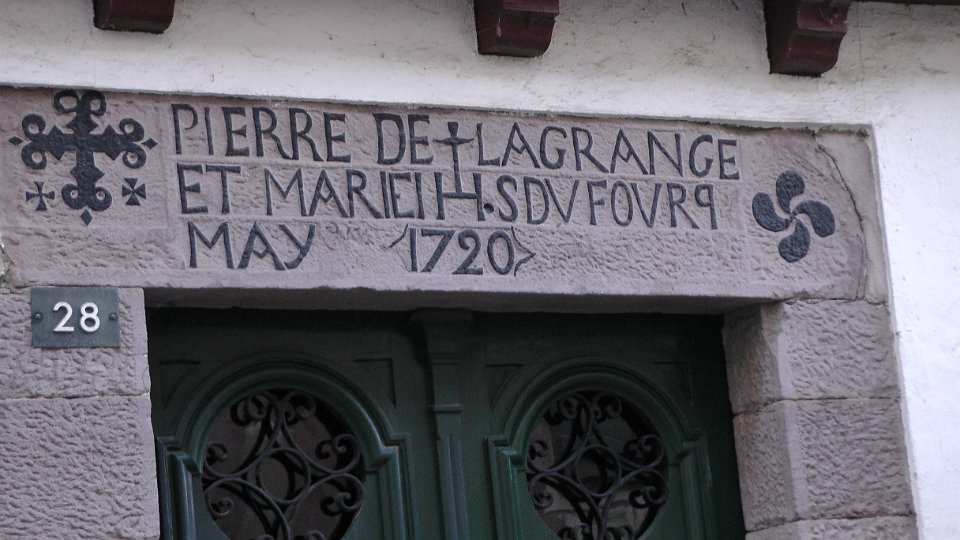 PIERRE DE LAGRANGE
ET MARIE IHS DVFOVRQ
MAY 1720
28